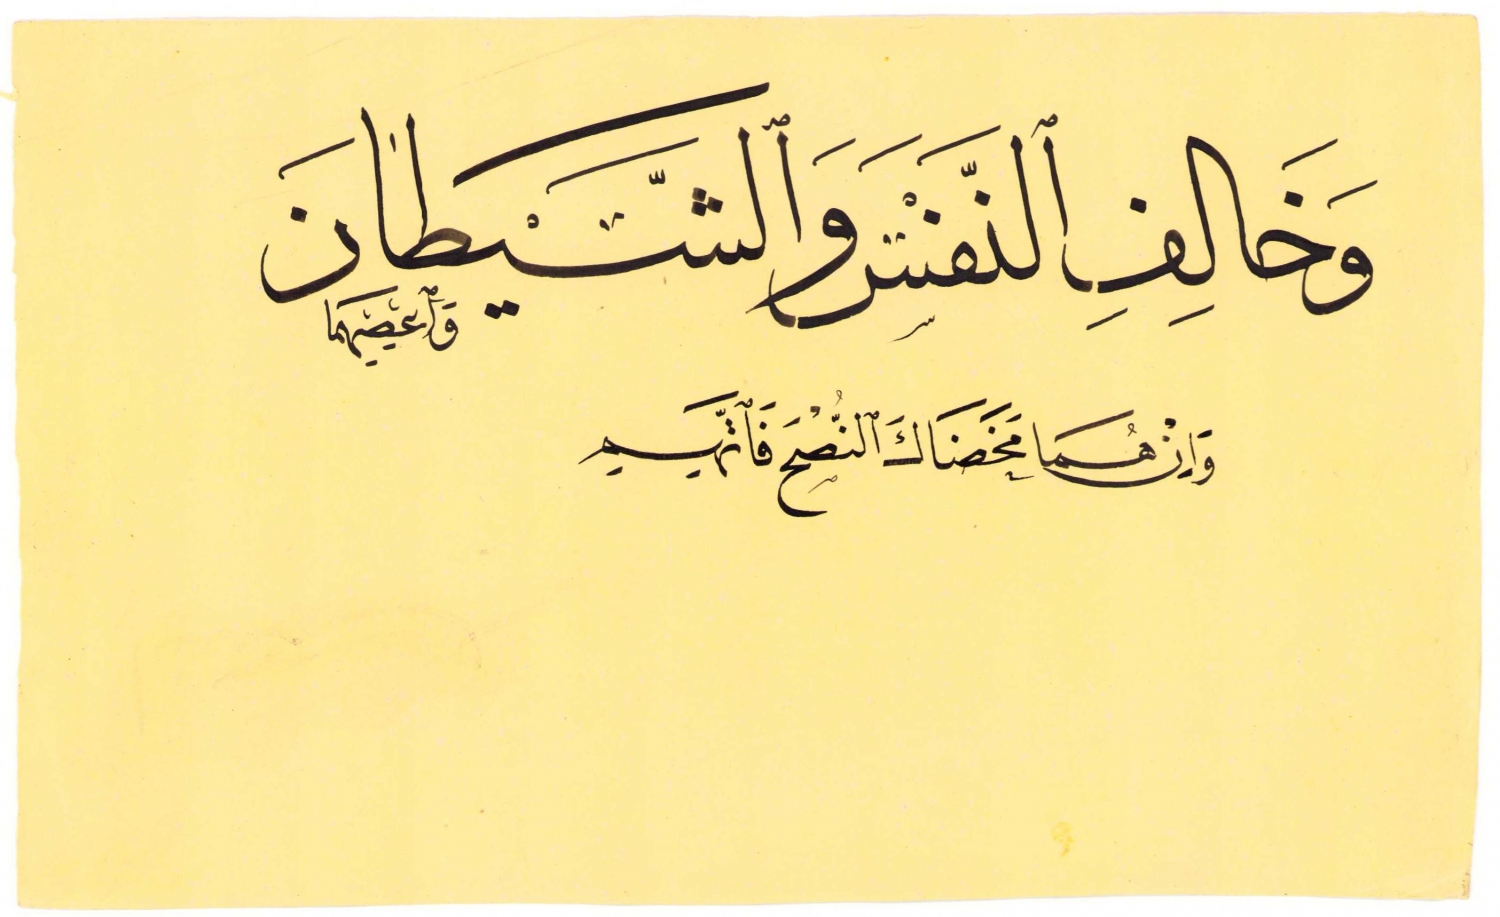 وَخَالِفِ ٱلنَّفْسَ وَٱلشَّيْطَانَ
وَٱعْصِهِمَا
وَاِنْ هُمَا مَحَضَاكَ ٱلنُّصْحَ فَٱتَّهِمِ